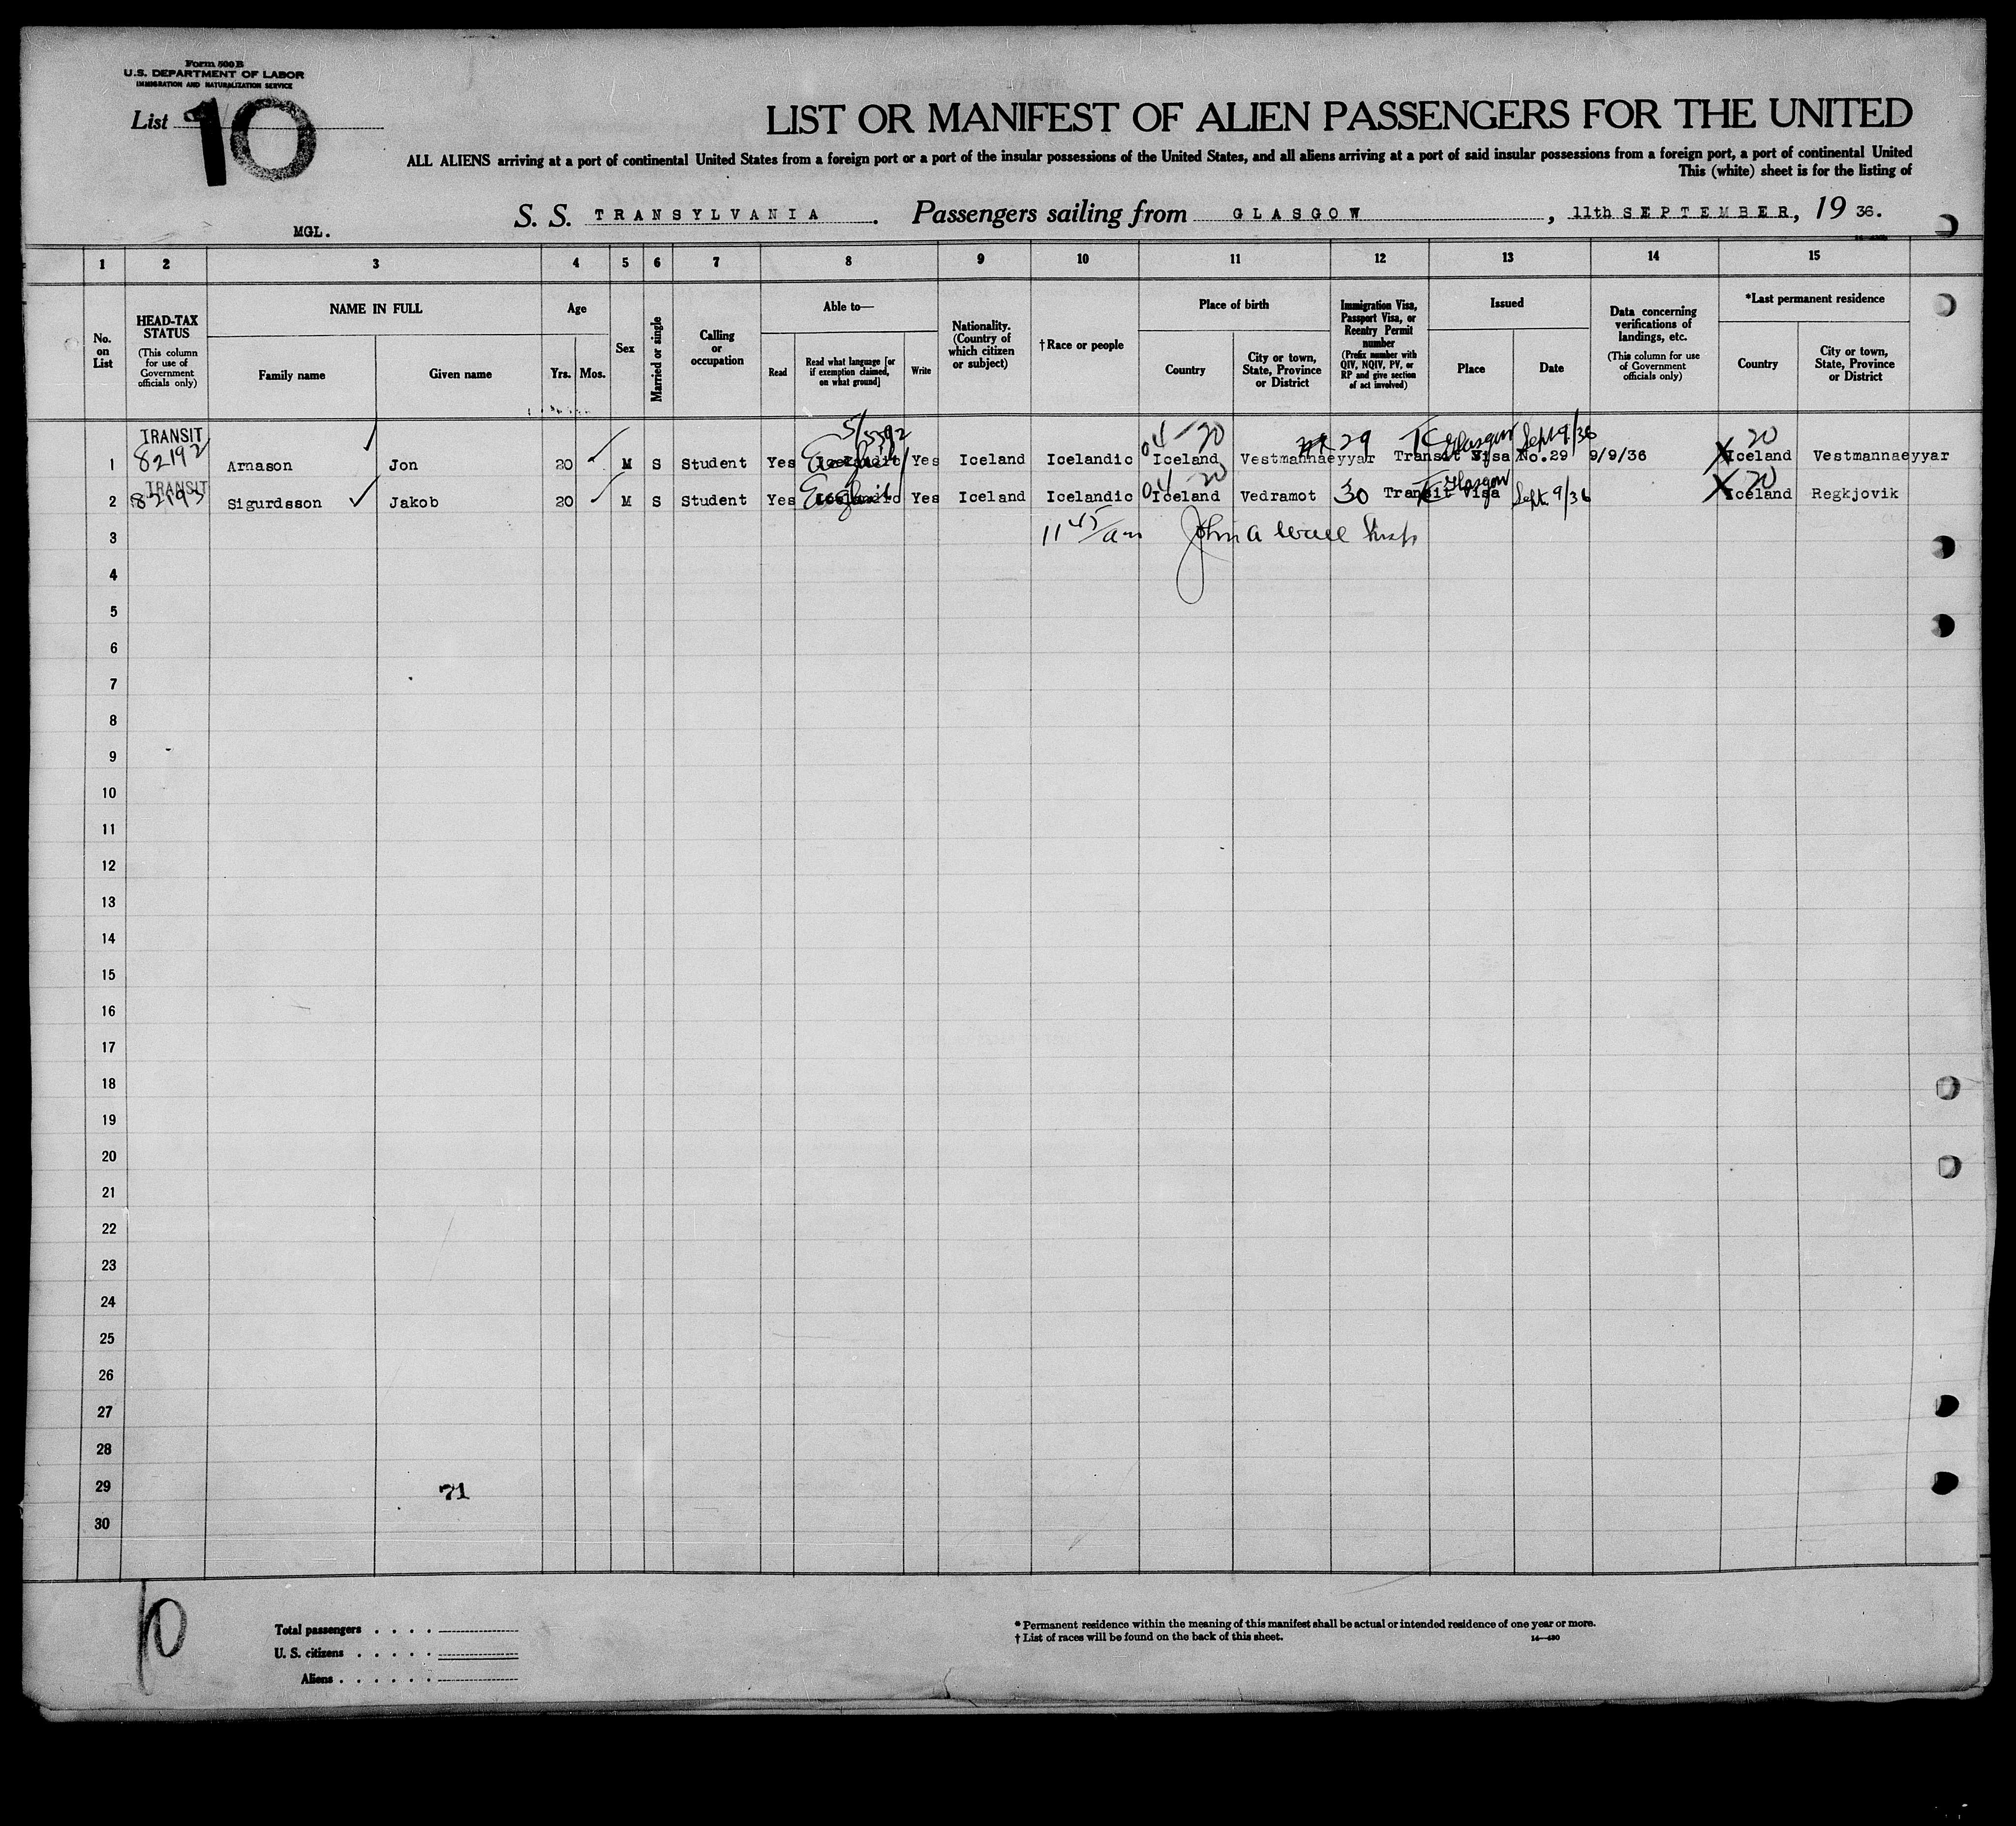 Form 500 B
U.S. DEPARTMENT OF LABOR
IMMIGRATION AND NATURALIZATION SERVICE
List 10
LIST OR MANIFEST OF ALIEN PASSENGERS FOR THE UNITED
ALL ALIENS arriving at a port of continental United States from a foreign port or a port of the insular possessions of the United States, and all aliens arriving at a port of said insular possessions from a foreign port, a port of continental United
This (white) sheet is for the listing of
S. S. TRANSYLVANIA. Passengers sailing from GLASGOW, 11th SEPTEMBER, 19 36.
MGL.
1 2 3 4 5 6 7 8 9 10 11 12 13 14 15
No. on List
HEAD-TAX STATUS
(This column for use of Government officials only)
NAME IN FULL
Family name
Given name
Age
Yrs. Mos.
Sex
Married or single
Calling or occupation
Able to—
Read
Read what language [or if exemption claimed, on what ground]
Write
Nationality. (Country of which citizen or subject)
†Race or people
Place of birth
Country
City or town, State, Province or District
Immigration Visa, Passport Visa, or Reentry Permit number
(Prefix number with QIV, NQIV, PV, or RP and give section of act involved)
Issued
Place
Date
Data concerning verifications of landings, etc.
(This column for use of Government officials only)
*Last permanent residence
Country
City or town, State, Province or District
TRANSIT
82192
04-20 29 Glasgow Sept 9/36 20
1 Arnason Jon 20 M S Student Yes English Yes Iceland Icelandic Iceland Vestmannaeyyar Transit Visa No.29 9/9/36 X Iceland Vestmannaeyyar
TRANSIT
82193
04 20 Glasgow 20
2 Sigurdsson Jakob 20 M S Student Yes English Yes Iceland Icelandic Iceland Vedramot 30 Transit Visa Sept 9/36 X Iceland Regkjovik
3 11 45/am John A
4
5
6
7
8
9
10
11
12
13
14
15
16
17
18
19
20
21
22
23
24
25
26
27
28
29 71
30
10
Total passengers . . . .
U. S. citizens . . . . .
Aliens . . . . . .
* Permanent residence within the meaning of this manifest shall be actual or intended residence of one year or more.
† List of races will be found on the back of this sheet.
14—480